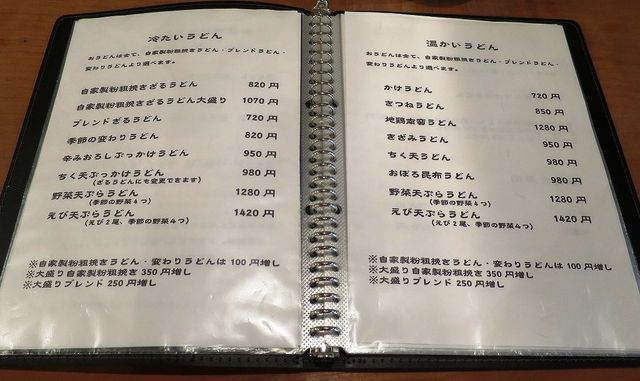 冷たいうどん
おうどんは全て、自家製粉粗挽きうどん・ブレンドうどん・
変わりうどんより選べます。
自家製粉粗挽きざるうどん 820 円
自家製粉粗挽きざるうどん大盛り 1070 円
ブレンドざるうどん 720 円
季節の変わりうどん 820 円
辛みおろしぶっかけうどん 950 円
ちく天ぶっかけうどん 980 円
(ざるうどんにも変更できます)
野菜天ぷらうどん 1280 円
(季節の野菜4つ)
えび天ぷらうどん 1420 円
(えび2尾、季節の野菜4つ)
※自家製粉粗挽きうどん・変わりうどんは 100 円増し
※大盛り自家製粉粗挽き 350 円増し
※大盛りブレンド 250 円増し
温かいうどん
おうどんは全て、自家製粉粗挽きうどん・ブレンドうどん・
変わりうどんより選べます。
かけうどん 720 円
きつねうどん 850 円
地鶏南蛮うどん 1280 円
きざみうどん 950 円
ちく天うどん 980 円
おぼろ昆布うどん 980 円
野菜天ぷらうどん 1280 円
(季節の野菜4つ)
えび天ぷらうどん 1420 円
(えび2尾、季節の野菜4つ)
※自家製粉粗挽きうどん・変わりうどんは 100 円増し
※大盛り自家製粉粗挽き 350 円増し
※大盛りブレンド 250 円増し